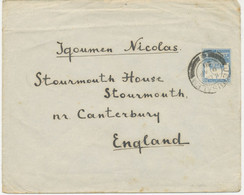 Igoumen Nicolas.
Stourmouth House
Stourmouth,
nr Canterbury
England